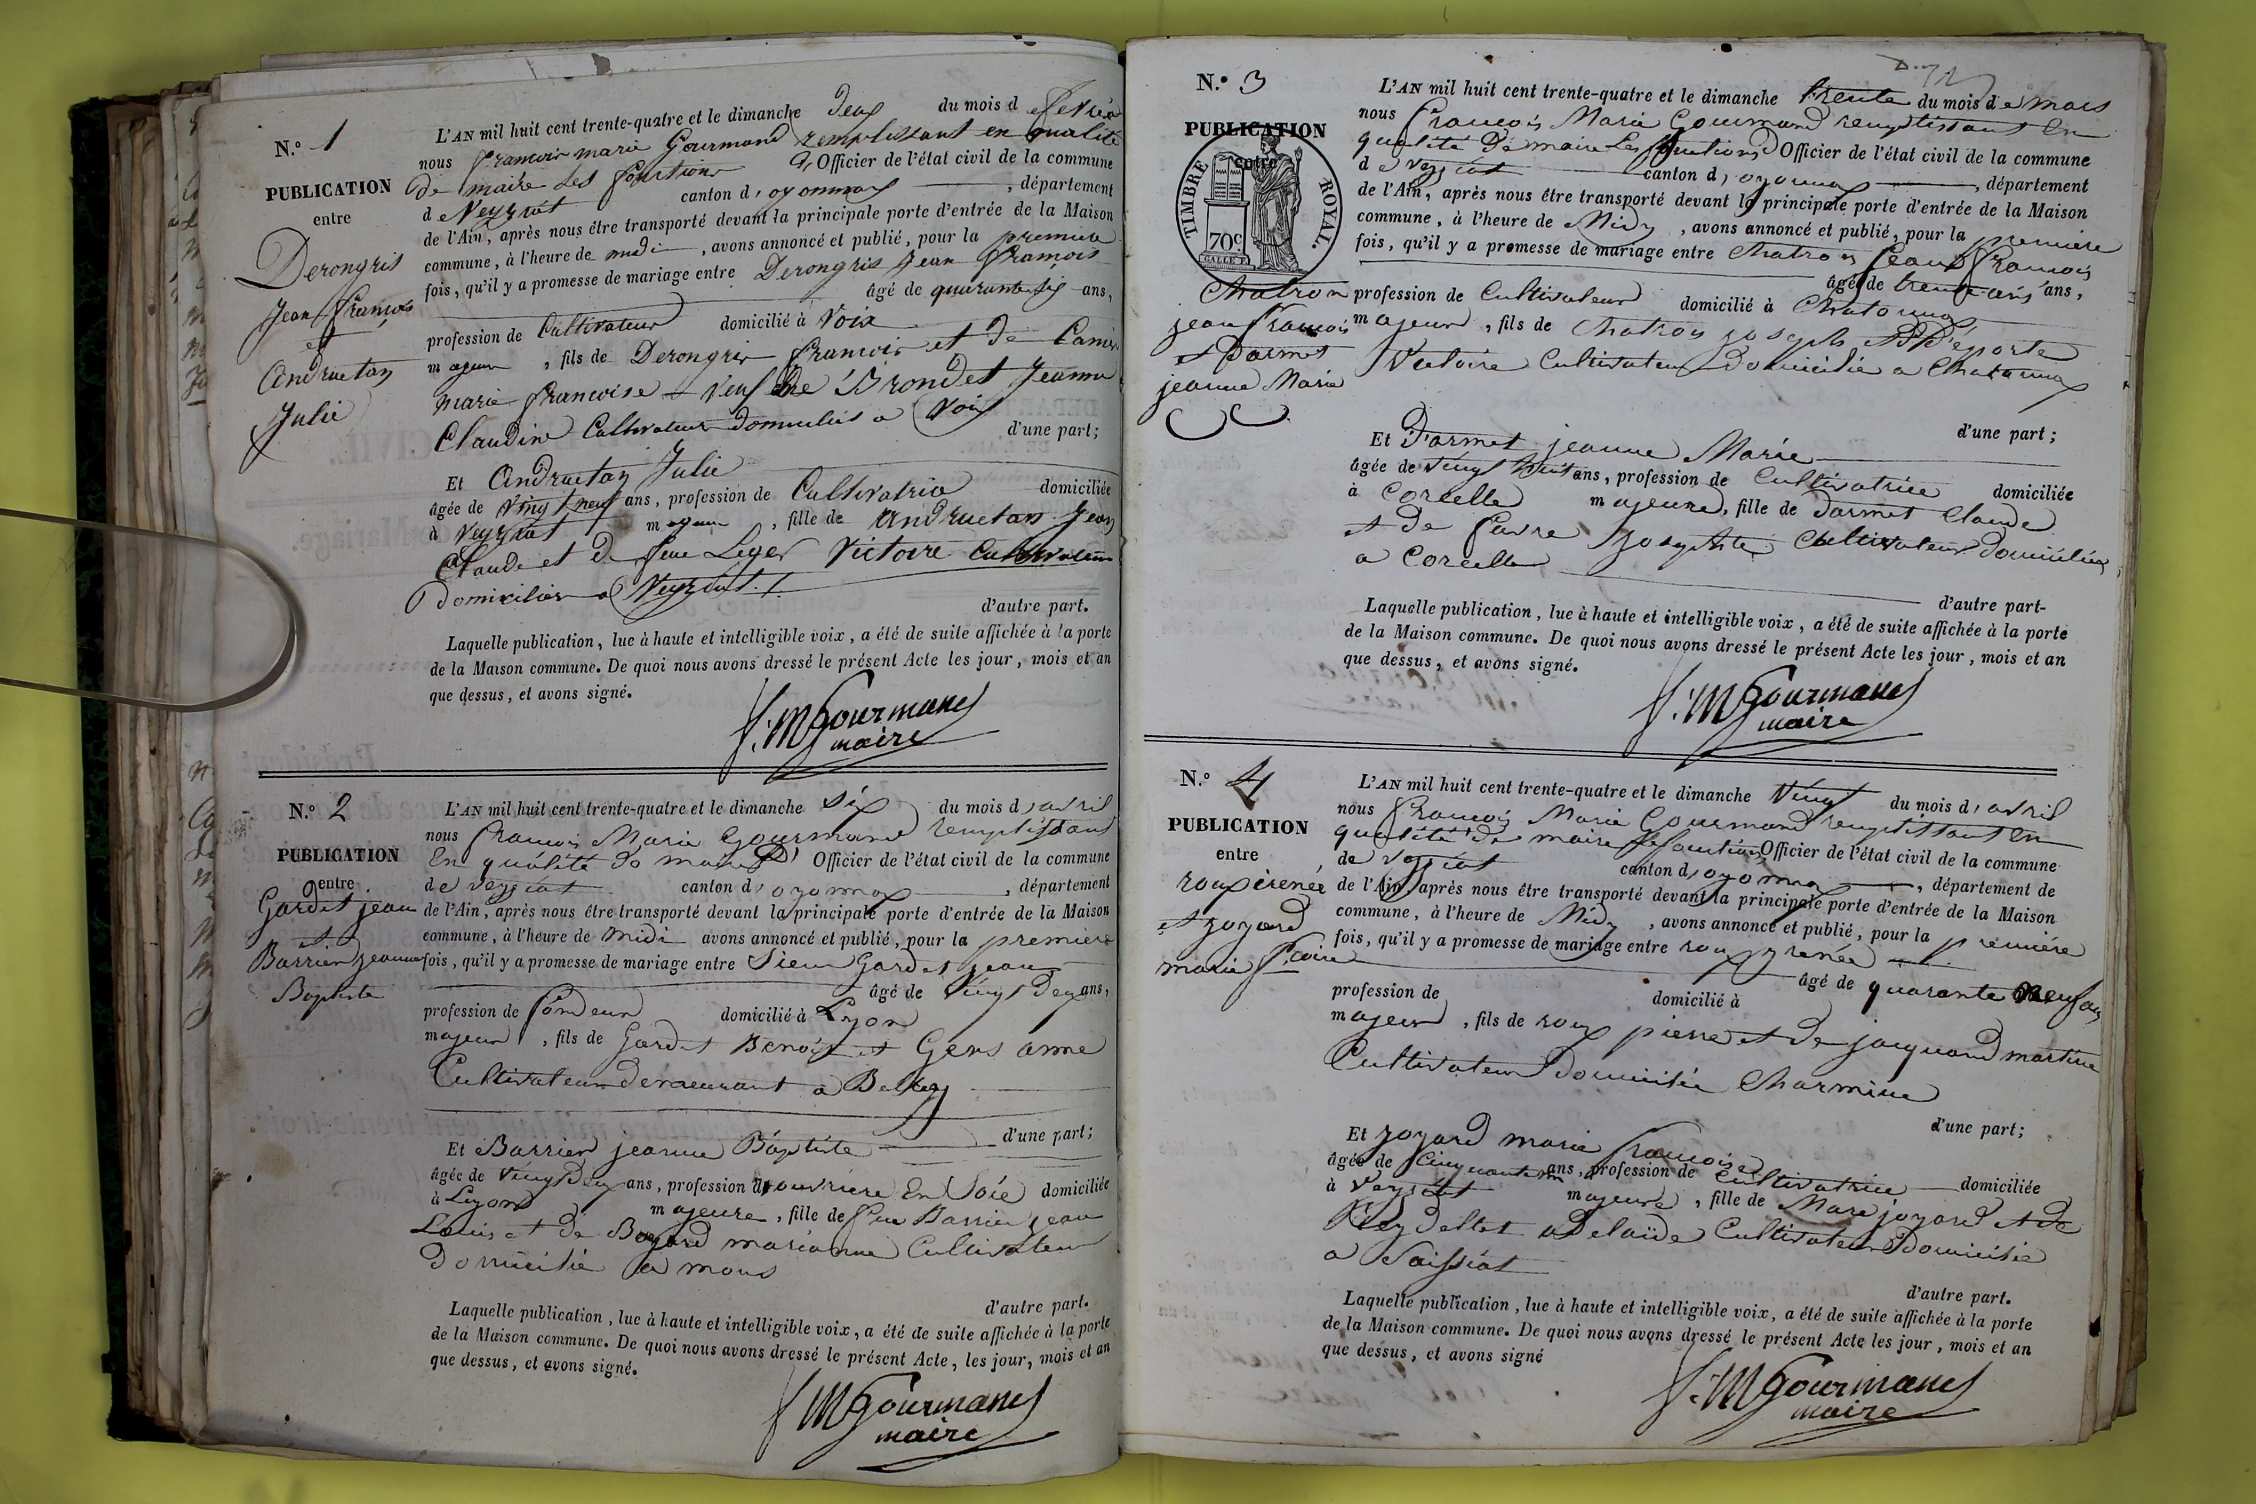 N.º 1
PUBLICATION
entre
Derongris
Jean François
et
Andruetan
Julie
L'AN mil huit cent trente-quatre et le dimanche deux du mois de fevrier
nous françois marie Gourmand remplissant en qualité
de maire les fonctions d'Officier de l'état civil de la commune
de Veyziat canton d'oyonnax, département
de l'Ain, après nous être transporté devant la principale porte d'entrée de la Maison
commune, à l'heure de midi, avons annoncé et publié, pour la premiere
fois, qu'il y a promesse de mariage entre Derongris Jean françois
âgé de quarante six ans,
profession de Cultivateur domicilié à Voix
majeur, fils de Derongris francois et de
marie francoise veuf de Brondet Jeanne
Claudine Cultivateur domicilies a Voix
d'une part;
Et Andruetan Julie
âgée de vingt neuf ans, profession de Cultivatrice domiciliée
à Veyziat majeure, fille de Andruetan Jean
Claude et de feue Leger Victoire Cultivateurs
domicilies a Veyziat
d'autre part.
Laquelle publication, lue à haute et intelligible voix, a été de suite affichée à la porte
de la Maison commune. De quoi nous avons dressé le présent Acte les jour, mois et an
que dessus, et avons signé.
f. M Gourmand
maire
N.º 2
PUBLICATION
entre
Gardet jean
et
Barrier jeanne
Baptiste
L'AN mil huit cent trente-quatre et le dimanche six du mois d'avril
nous François Marie Gourmand remplissant
En qualité de maire d'Officier de l'état civil de la commune
de veyziat canton d'oyonnax, département
de l'Ain, après nous être transporté devant la principale porte d'entrée de la Maison
commune, à l'heure de midi avons annoncé et publié, pour la premiere
fois, qu'il y a promesse de mariage entre Sieur Gardet jean
âgé de vingt deux ans,
profession de fondeur domicilié à Lyon
majeur, fils de Gardet Benoit et Gens anne
Cultivateur demeurant a Belley
d'une part;
Et Barrier jeanne Baptiste
âgée de vingt deux ans, profession d'ouvriere En Soie domiciliée
à Lyon majeure, fille de feu Barrier jean
Louis et de marianne Cultivateur
domicilié a mons
d'autre part.
Laquelle publication, lue à haute et intelligible voix, a été de suite affichée à la porte
de la Maison commune. De quoi nous avons dressé le présent Acte, les jour, mois et an
que dessus, et avons signé.
f. M Gourmand
maire
N.º 3
PUBLICATION
entre
TIMBRE ROYAL.
70c
Chatron
jean francois
et Darmet
jeanne Marie
L'AN mil huit cent trente-quatre et le dimanche trente du mois de mars
nous François Marie Gourmand remplissant En
qualité de maire Les fonctions d'Officier de l'état civil de la commune
de veyziat canton d'oyonnax, département
de l'Ain, après nous être transporté devant la principale porte d'entrée de la Maison
commune, à l'heure de Midy, avons annoncé et publié, pour la premiere
fois, qu'il y a promesse de mariage entre Chatron Jean François
âgé de trente ans,
profession de Cultivateur domicilié à
majeur, fils de Chatron joseph et
Victoire Cultivateur Domicilié a
d'une part;
Et Darmet jeanne Marie
âgée de vingt huit ans, profession de Cultivatrice domiciliée
à Corcelle majeure, fille de Darmet Claude
et de favre Cultivateur domiciliés
a Corcelle
d'autre part-
Laquelle publication, lue à haute et intelligible voix, a été de suite affichée à la porte
de la Maison commune. De quoi nous avons dressé le présent Acte les jour, mois et an
que dessus, et avons signé.
f. M Gourmand
maire
N.º 4
PUBLICATION
entre
roux irenée
et joyard
marie
L'AN mil huit cent trente-quatre et le dimanche Vingt du mois d'avril
nous François Marie Gourmand remplissant En
qualité de maire les fonctions Officier de l'état civil de la commune
de veyziat canton d'oyonnax, département de
de l'Ain, après nous être transporté devant la principale porte d'entrée de la Maison
commune, à l'heure de Midy, avons annoncé et publié, pour la premiére
fois, qu'il y a promesse de mariage entre roux yrenée
âgé de quarante neuf ans
profession de domicilié à
majeur, fils de roux pierre et de jacquand martine
Cultivateur domicilié Charmine
d'une part;
Et joyard marie francoise
âgée de Cinquante ans, profession de Cultivatrice domiciliée
à veyziat majeure, fille de Marc joyard et de
Reydellet adelaïde Cultivateur Domicilié
a
d'autre part.
Laquelle publication, lue à haute et intelligible voix, a été de suite affichée à la porte
de la Maison commune. De quoi nous avons dressé le présent Acte les jour, mois et an
que dessus, et avons signé
f. M Gourmand
maire